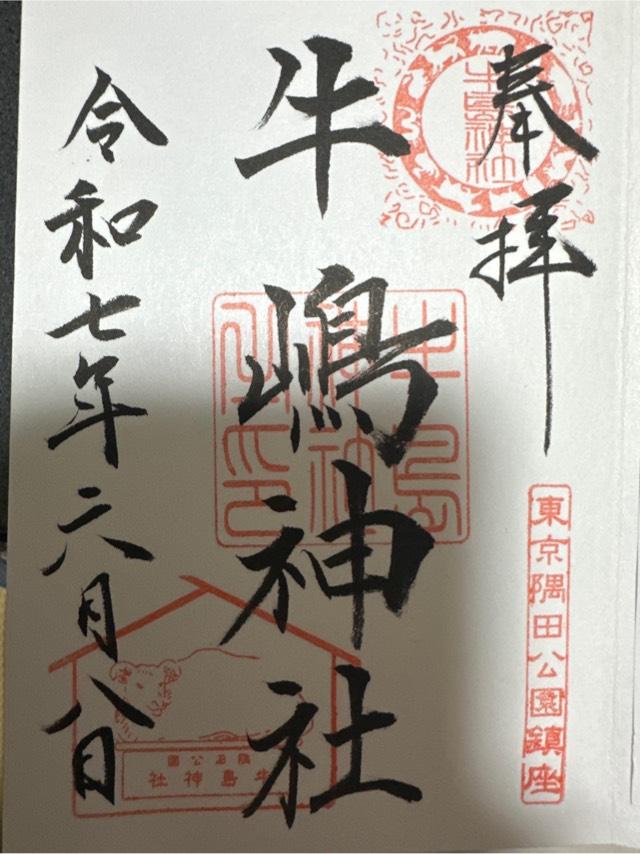 奉拝
牛島神社
東京隅田公園鎮座
牛嶋神社
牛島
神社
令和七年六月八日
隅田公園
牛島神社